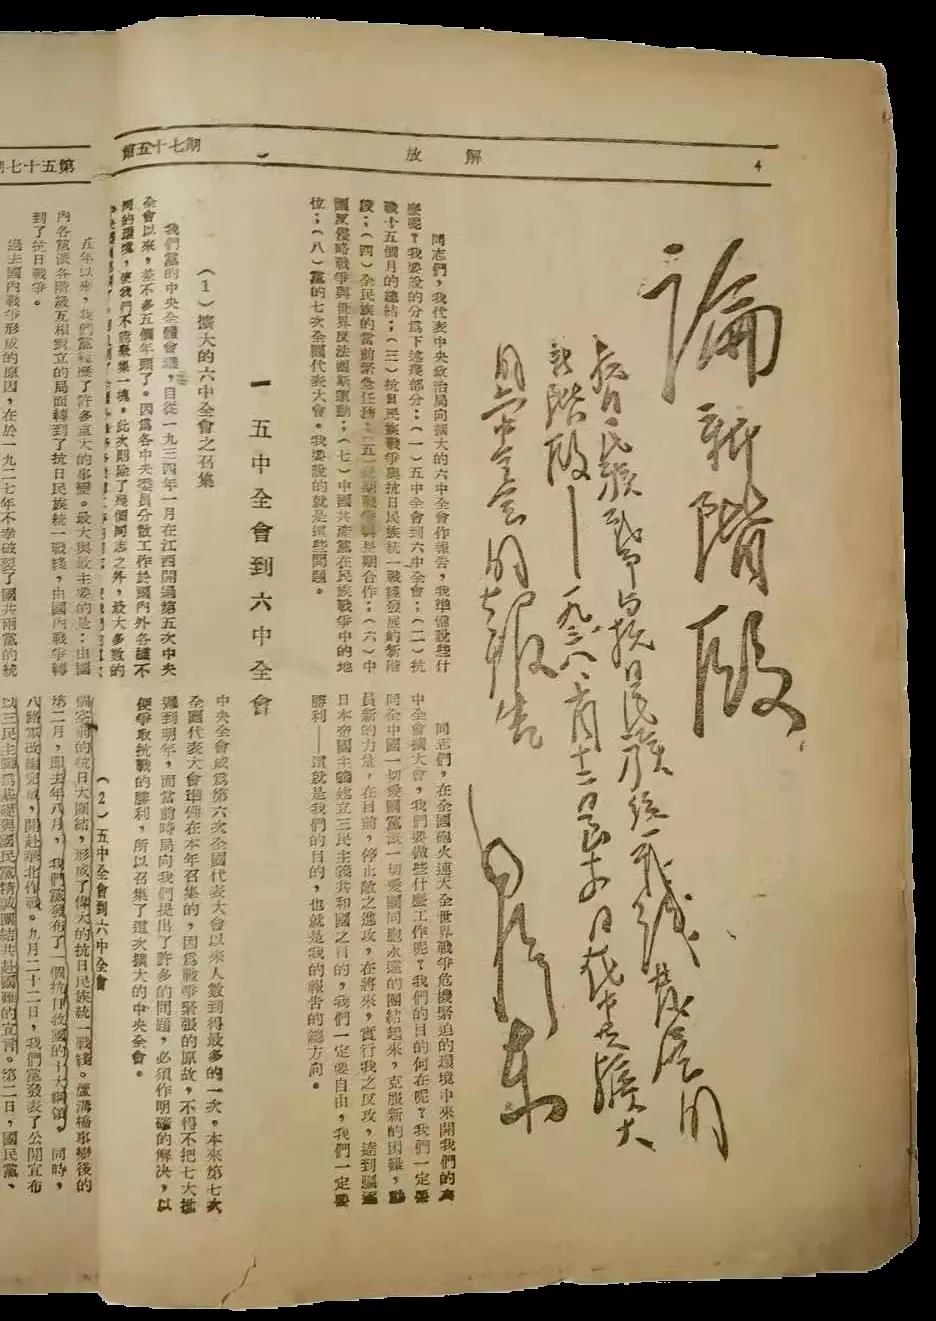 4
解放
第五十七期
論新階段
抗日民族戰爭與抗日民族統一戰線發展的
新階段——一九三八年十月十二日至十四日在中共擴大
的六中全會的報告
毛澤東
同志們，我代表中央政治局向擴大的六中全會作報告，我準備說些什
麼呢？我要說的分爲下述幾部分：(一)五中全會到六中全會；(二)抗
戰十五個月的總結；(三)抗日民族戰爭與抗日民族統一戰線發展的新階
段；(四)全民族的當前緊急任務；(五)長期戰爭與長期合作；(六)中
國反侵略戰爭與世界反法西斯運動；(七)中國共產黨在民族戰爭中的地
位；(八)黨的七次全國代表大會。我要說的就是這些問題。
同志們，在全國砲火連天全世界戰爭危機緊迫的環境中來開我們的六
中全會擴大會，我們要做些什麼工作呢？我們的目的何在呢？我們一定要
同全中國一切愛國黨派一切愛國同胞永遠的團結起來，克服新的困難，動
員新的力量，在目前，停止敵之進攻，在將來，實行我之反攻，達到驅逐
日本帝國主義建立三民主義共和國之目的，我們一定要自由，我們一定要
勝利——這就是我們的目的，也就是我的報告的總方向。
一 五中全會到六中全會
(1)擴大的六中全會之召集
我們黨的中央全體會議，自從一九三四年一月在江西開過第五次中央
全會以來，差不多五個年頭了。因爲各中央委員分散工作於國內外各種不
同的環境，使我們不能聚集一塊。此次則除了幾個同志之外，最大多數的
中央全會成爲第六次全國代表大會以來人數到得最多的一次。本來第七次
全國代表大會準備在本年召集的，因爲戰爭緊張的原故，不得不把七大推
遲到明年，而當前時局向我們提出了許多的問題，必須作明確的解決，以
便爭取抗戰的勝利，所以召集了這次擴大的中央全會。
(2)五中全會到六中全會
第五十七期
五年以來，我們黨經歷了許多重大的事變。最大與最主要的是：由國
內各黨派各階級互相對立的局面轉到了抗日民族統一戰綫，由國內戰爭轉
到了抗日戰爭。
過去國內戰爭形成的原因，在於一九二七年不幸破裂了國共兩黨的統
備空前的抗日大團結，形成了偉大的抗日民族統一戰綫。蘆溝橋事變後的
第二月，即去年八月，我們黨發布了一個抗日救國的十大綱領。同時，
八路軍改編完成，開赴華北作戰。九月二十二日，我們黨發表了公開宣布
以三民主義爲基礎與國民黨精誠團結共赴國難的宣言。第二日，國民黨、